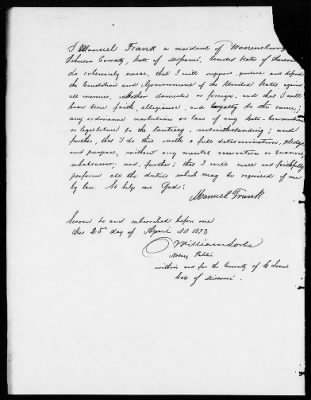 I Manuel Frank a resident of Warrensburg
Johnson County, State of Missouri, United States of America
do solemnly swear, that I will support, protect and defend
the Constitution and Government of the United States against
all enemies, whether domestic or foreign, and that I will
bear true faith, allegiance, and loyalty to the same;
any ordinance resolution or law of any State, Convention
or legislature to the contrary, notwithstanding; and
further, that I do this with a full determination, pledge
and purpose, without any mental reservation or evasion
whatsoever; and, further, that I will well and faithfully
perform all the duties which may be required of me
by law. So help me God!
Manuel Frank
Sworn to and subscribed before me
this 25th day of April AD 1873
William
Notary Public
within and for the County of St Louis
State of Missouri.